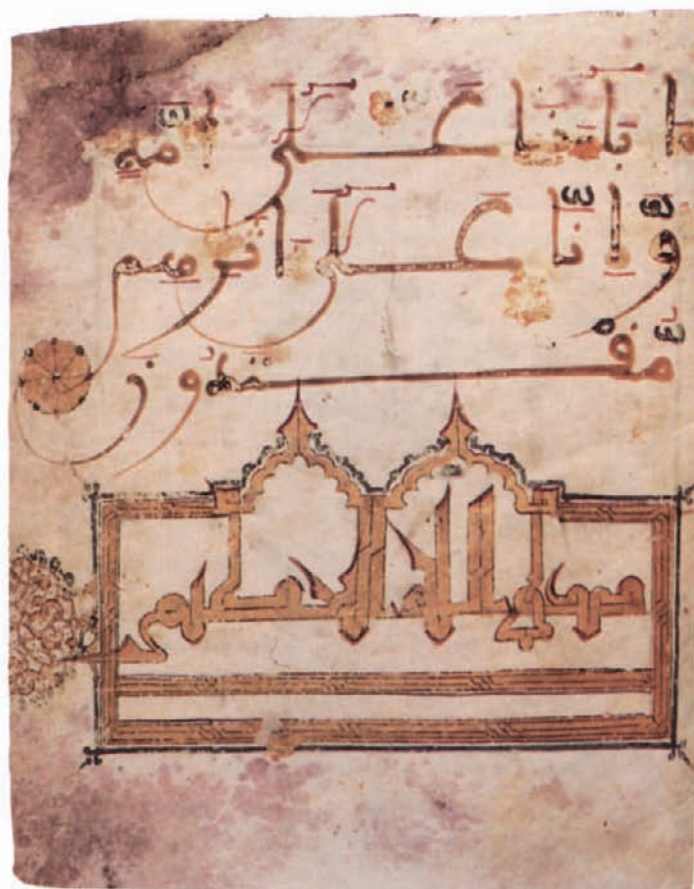 ءاباءنا على أمة
وإنا على ءاثرهم
مقتدون
صدق الله العظيم